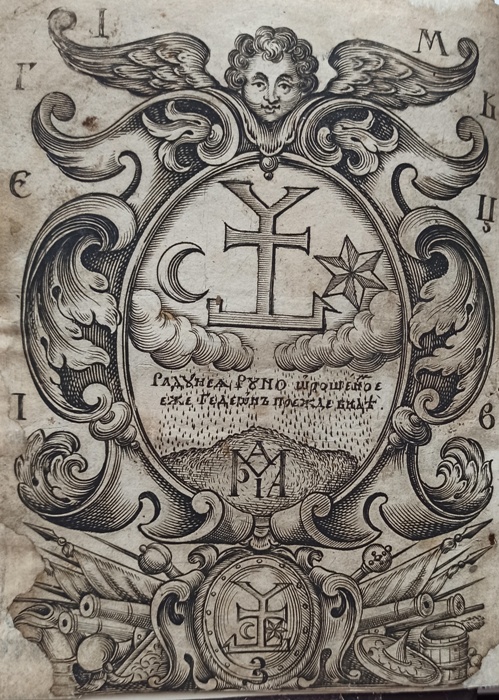 І М
Г К
Є Ц
Радуйсѧ Руно ѡрошеное
еже Гедеѡнъ прежде видѣ.
МАРІА